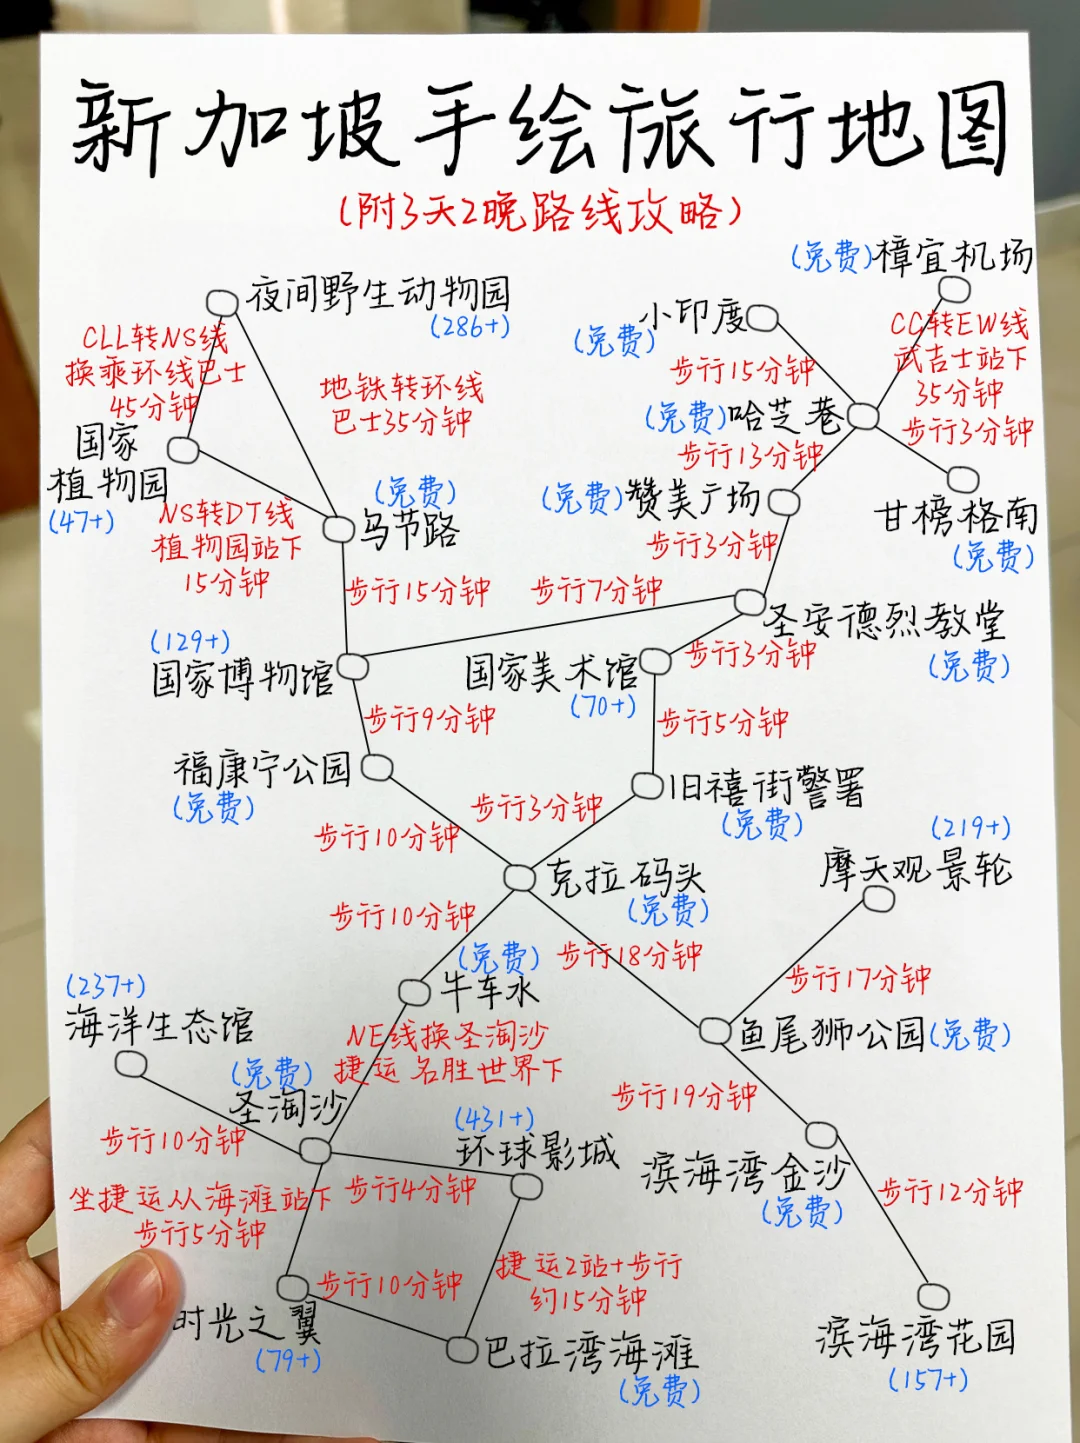 新加坡手绘旅行地图
(附3天2晚路线攻略)
(免费)樟宜机场
夜间野生动物园
(286+)
小印度
(免费)
CLL转NS线
换乘环线巴士
45分钟
CC转EW线
武吉士站下
35分钟
步行15分钟
地铁转环线
巴士35分钟
(免费)哈芝巷
步行3分钟
国家
植物园
(47+)
步行13分钟
(免费)
乌节路
(免费)赞美广场
甘榜格南
(免费)
NS转DT线
植物园站下
15分钟
步行3分钟
步行15分钟
步行7分钟
圣安德烈教堂
(免费)
(129+)
国家博物馆
国家美术馆
(70+)
步行3分钟
步行9分钟
步行5分钟
福康宁公园
(免费)
旧禧街警署
(免费)
步行3分钟
步行10分钟
(219+)
摩天观景轮
克拉码头
(免费)
步行10分钟
(免费)
牛车水
步行18分钟
步行17分钟
(237+)
海洋生态馆
鱼尾狮公园(免费)
NE线换圣淘沙
捷运名胜世界下
(免费)
圣淘沙
步行19分钟
(431+)
环球影城
步行10分钟
滨海湾金沙
(免费)
坐捷运从海滩站下
步行5分钟
步行4分钟
步行12分钟
捷运2站+步行
约15分钟
步行10分钟
时光之翼
(79+)
巴拉湾海滩
(免费)
滨海湾花园
(157+)